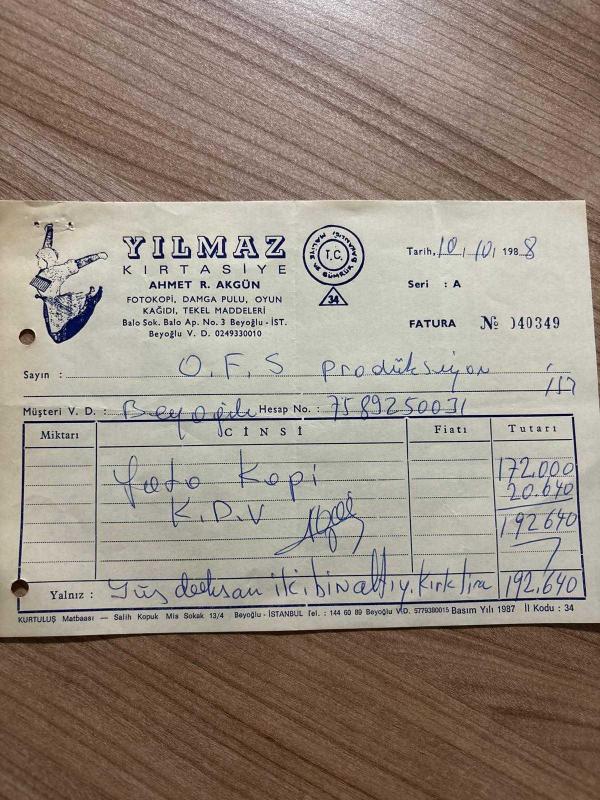 YILMAZ
KIRTASİYE
AHMET R. AKGÜN
FOTOKOPİ, DAMGA PULU, OYUN
KAĞIDI, TEKEL MADDELERİ
Balo Sok. Balo Ap. No. 3 Beyoğlu - İST.
Beyoğlu V. D. 0249330010
T.C.
MALİYE VE GÜMRÜK BAKANLIĞI
34
Tarih, 10 / 10 / 1988
Seri : A
FATURA № 040349
Sayın : O.F.S prodüksiyon
İST
Müşteri V. D. : Beyoğlu Hesap No. : 7589250031
Miktarı CİNSİ Fiatı Tutarı
Foto Kopi 172.000
K.D.V 20.640
192640
Yalnız : Yüz doksan iki bin altıy. kırk lira 192.640
KURTULUŞ Matbaası — Salih Kopuk Mis Sokak 13/4 Beyoğlu - İSTANBUL Tel. : 144 60 89 Beyoğlu V.D. 5779380015 Basım Yılı 1987 İl Kodu : 34